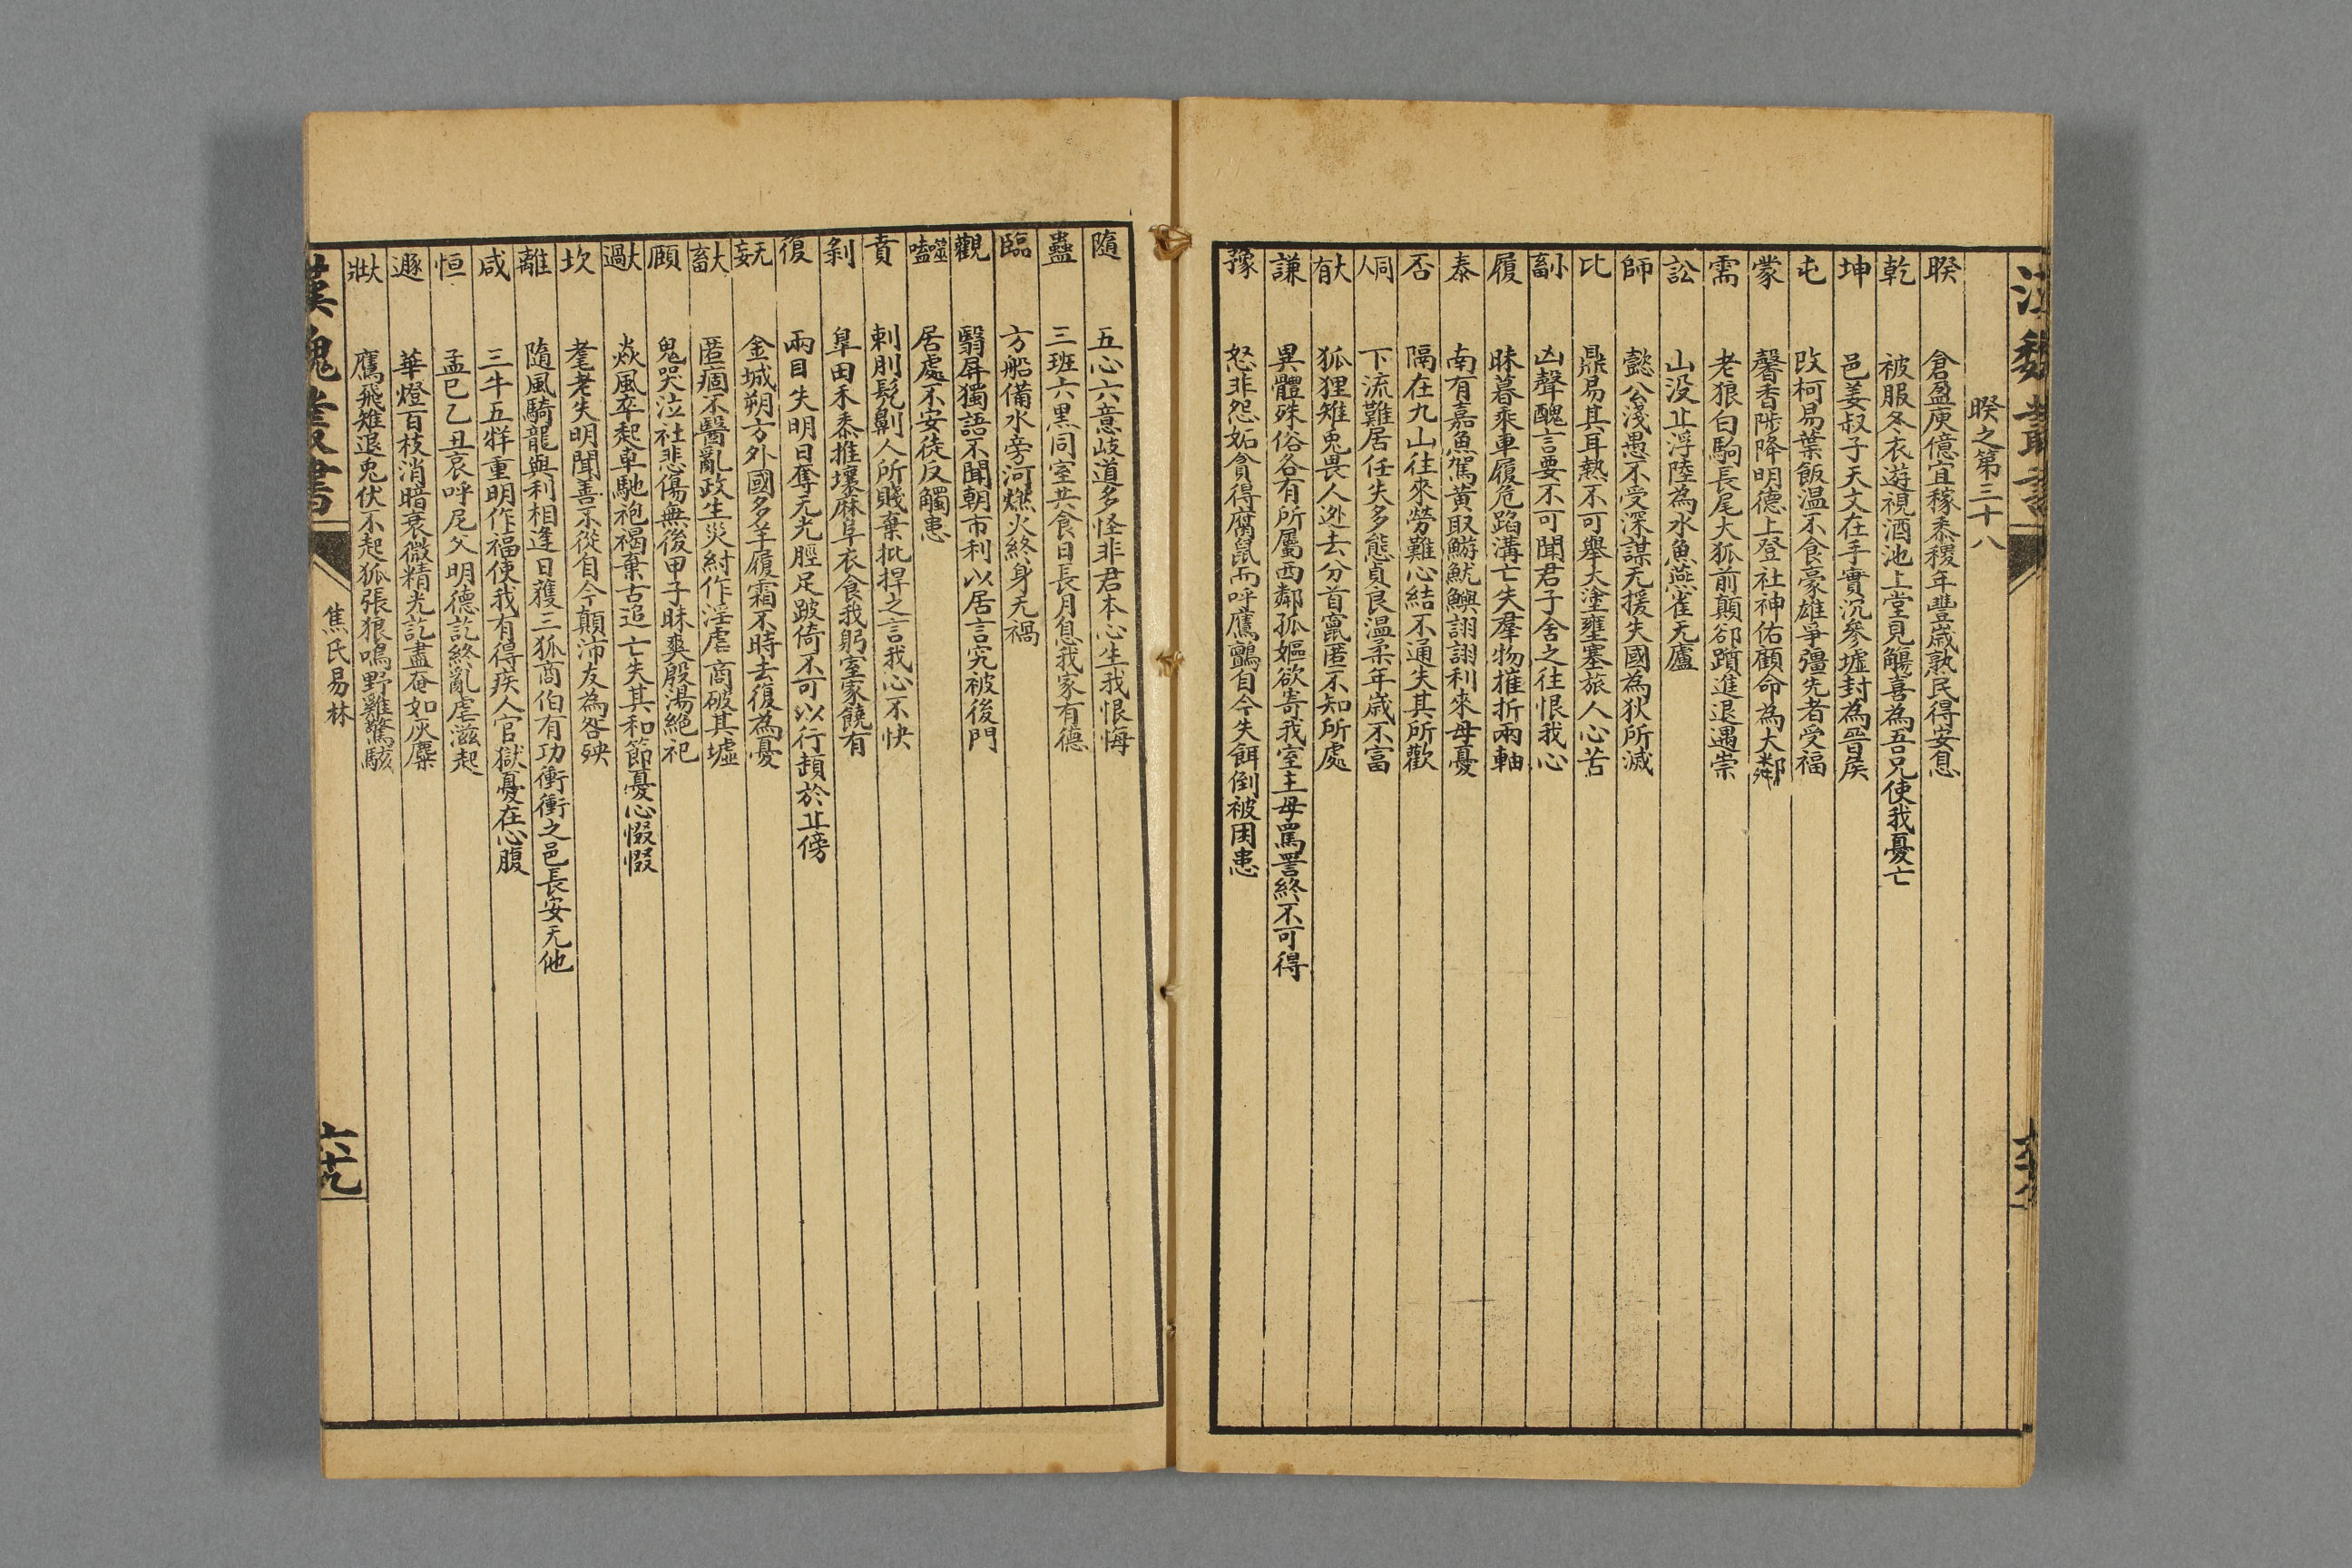 漢魏叢書
睽之第三十八
睽 倉盈庾億宜稼黍稷年豐歲熟民得安息
乾 被服冬衣遊視酒池上堂見觴喜為吾兄使我憂亡
坤 邑姜叔子天文在手實沉參墟封為晉侯
屯 改柯易葉飯温不食豪雄爭彊先者受福
蒙 馨香陟降明德上登社神佑顧命為大鄰
需 老狼白駒長尾大狐前顛卻躓進退遇祟
訟 山没止浮陸為水魚燕雀无廬
師 懿公淺愚不受深謀无援失國為狄所滅
比 鼎易其耳熱不可舉大塗壅塞旅人心苦
小畜 凶聲醜言要不可聞君子舍之往恨我心
履 昧暮乘車履危蹈溝亡失羣物摧折兩軸
泰 南有嘉魚駕黃取鰌魷鱮詡詡利來毋憂
否 隔在九山往來勞難心結不通失其所歡
同人 下流難居任失多態貞良温柔年歲不富
大有 狐狸雉兔畏人逃去分首竄匿不知所處
謙 異體殊俗各有所屬西鄰孤嫗欲寄我室主母罵詈終不可得
豫 怒非怨妬貪得腐鼠而呼鷹鸇自令失餌倒被困患
隨 五心六意岐道多怪非君本心生我恨悔
蠱 三班六黑同室共食日長月息我家有德
臨 方船備水旁河燃火終身无禍
觀 翳屏獨語不聞朝市利以居言究被後門
噬嗑 居處不安徒反觸患
賁 剌刖髡劓人所賤棄批捍之言我心不快
剝 皐田禾黍推壤麻阜衣食我躬室家饒有
復 兩目失明日奪无光脛足跛倚不可以行頚於丘傍
无妄 金城朔方外國多羊履霜不時去復為憂
大畜 匿痼不醫亂政生災紂作淫虐商破其墟
頤 鬼哭泣社悲傷無後甲子昧爽殷湯絕祀
大過 焱風卒起車馳袍褐棄古追亡失其和節憂心惙惙
坎 耄老失明聞善不從自令顛沛友為咎殃
離 隨風騎龍與利相逢日獲三狐商伯有功衝衝之邑長安无他
咸 三牛五牂重明作福使我有得疾人官獄憂在心腹
恒 孟巳乙丑哀呼尼父明德訖終亂虐滋起
遯 華燈百枝消暗衰微精光訖盡奄如灰麋
大壯 鷹飛雉退兔伏不起狐張狼鳴野雞驚駭
漢魏叢書
焦氏易林
六十九